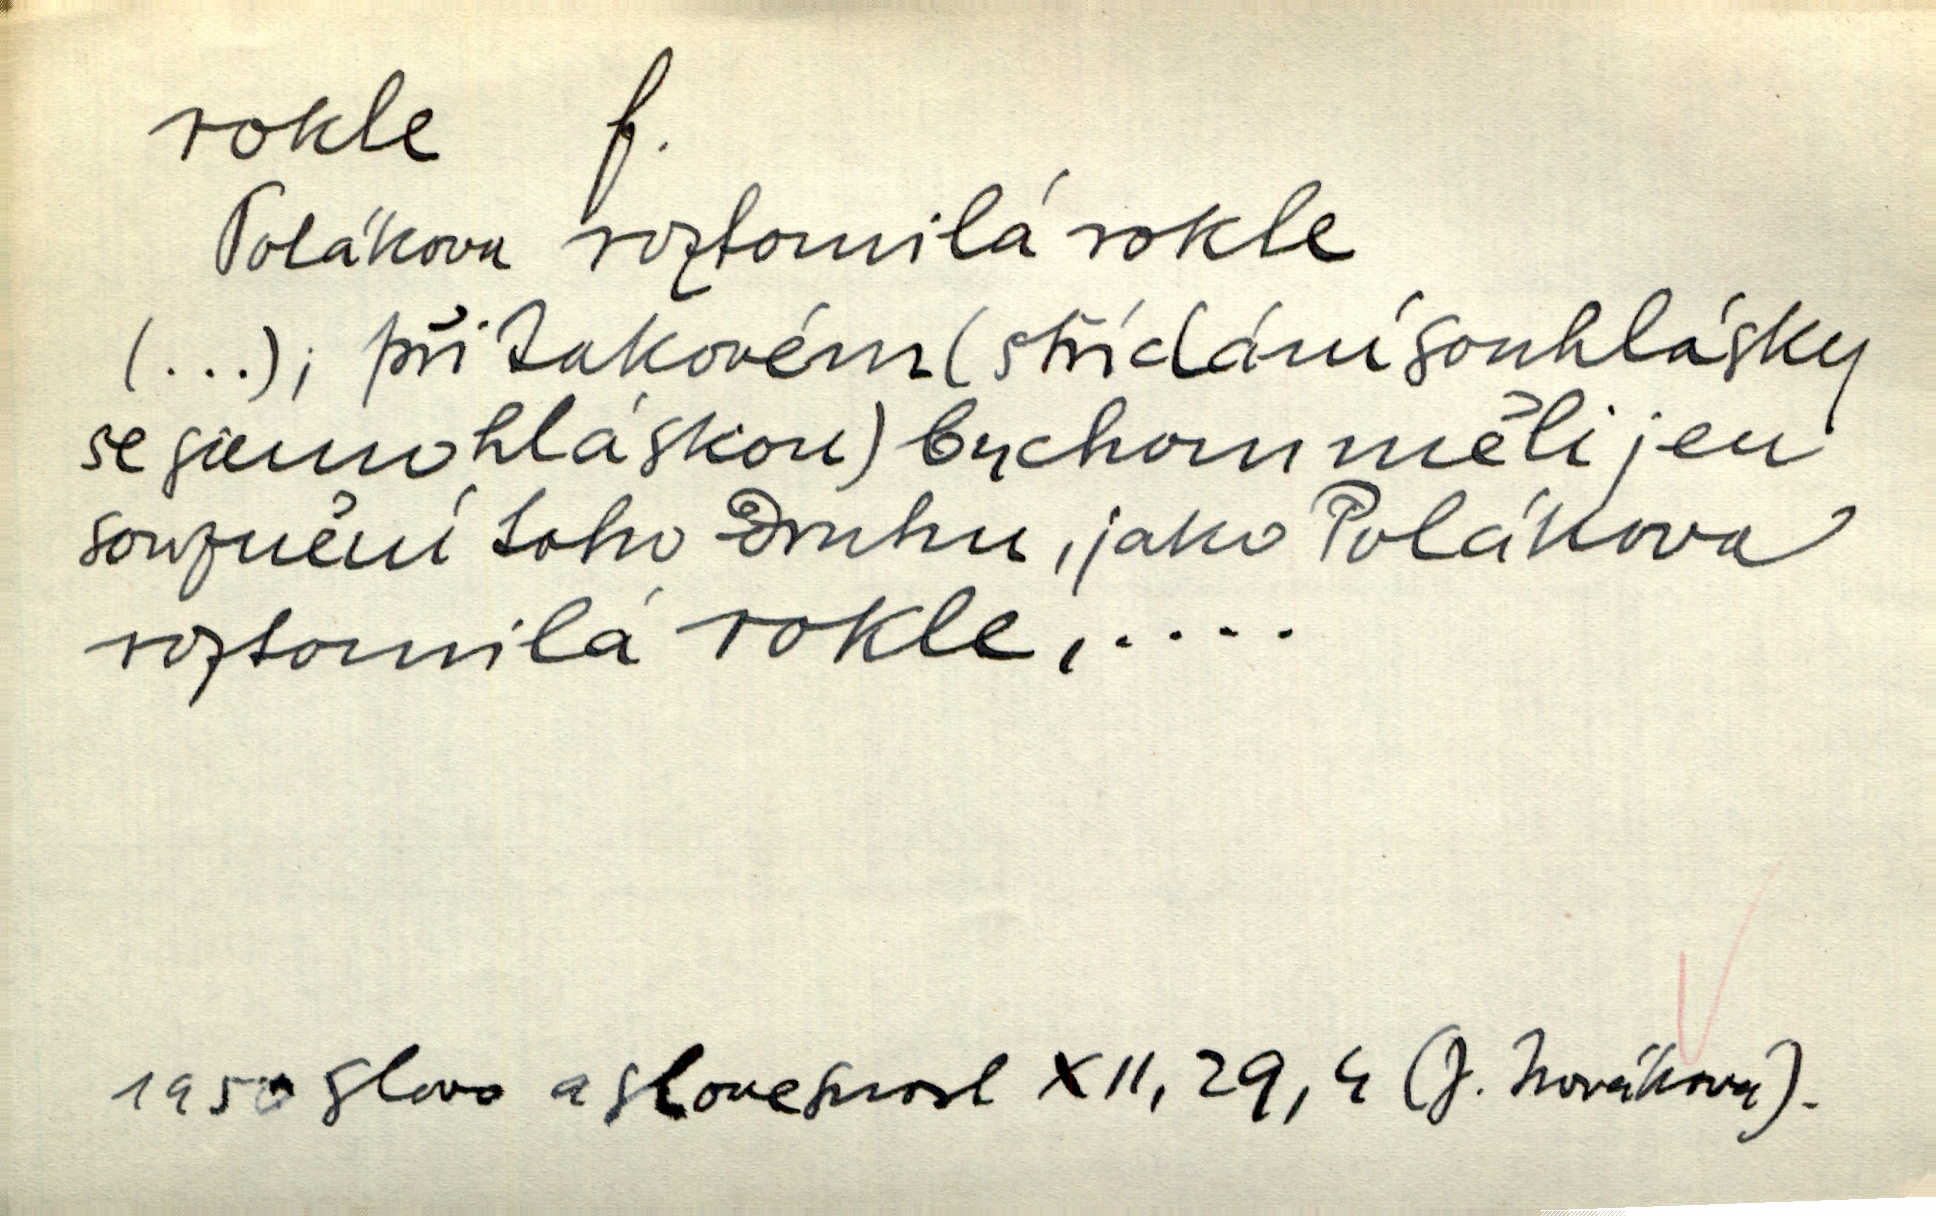 rokle f.
Polákova roztomilá rokle
(...); při takovém (střídání souhlásky
se samohláskou) bychom měli jen
souznění toho druhu, jako Polákova
roztomilá rokle, ....
1950 Slovo a slovesnost XII, 29, 4 (J. Nováková).